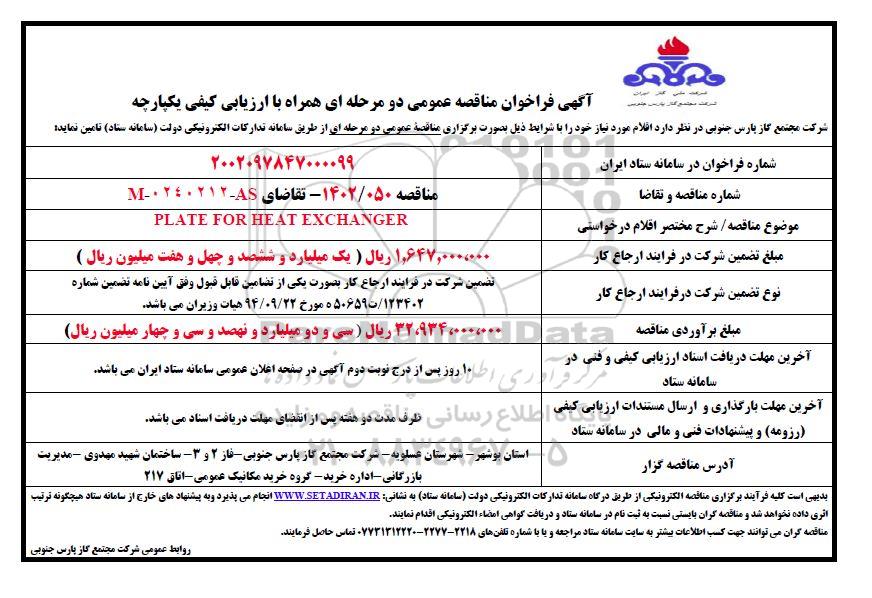 شرکت ملی گاز ایران
شرکت مجتمع گاز پارس جنوبی
آگهی فراخوان مناقصه عمومی دو مرحله ای همراه با ارزیابی کیفی یکپارچه
شرکت مجتمع گاز پارس جنوبی در نظر دارد اقلام مورد نیاز خود را با شرایط ذیل بصورت برگزاری مناقصه عمومی دو مرحله ای از طریق سامانه تدارکات الکترونیکی دولت (سامانه ستاد) تامین نماید:
شماره فراخوان در سامانه ستاد ایران
۲۰۰۲۰۹۷۸۴۷۰۰۰۰۹۹
شماره مناقصه و تقاضا
مناقصه ۱۴۰۲/۰۵۰– تقاضای M-۰۲۴۰۲۱۲-AS
موضوع مناقصه/ شرح مختصر اقلام درخواستی
PLATE FOR HEAT EXCHANGER
مبلغ تضمین شرکت در فرایند ارجاع کار
۱,۶۴۷,۰۰۰,۰۰۰ ریال ( یک میلیارد و ششصد و چهل و هفت میلیون ریال )
نوع تضمین شرکت درفرایند ارجاع کار
تضمین شرکت در فرایند ارجاع کار بصورت یکی از تضامین قابل قبول وفق آیین نامه تضمین شماره
۱۲۳۴۰۲/ت۵۰۶۵۹ه مورخ ۹۴/۰۹/۲۲ هیات وزیران می باشد.
مبلغ برآوردی مناقصه
۳۲,۹۳۴,۰۰۰,۰۰۰ ریال ( سی و دو میلیارد و نهصد و سی و چهار میلیون ریال)
آخرین مهلت دریافت اسناد ارزیابی کیفی و فنی در
سامانه ستاد
۱۰ روز پس از درج نوبت دوم آگهی در صفحه اعلان عمومی سامانه ستاد ایران می باشد.
آخرین مهلت بارگذاری و ارسال مستندات ارزیابی کیفی
(رزومه) و پیشنهادات فنی و مالی در سامانه ستاد
ظرف مدت دو هفته پس از انقضای مهلت دریافت اسناد می باشد.
آدرس مناقصه گزار
استان بوشهر– شهرستان عسلویه– شرکت مجتمع گاز پارس جنوبی–فاز ۲ و ۳– ساختمان شهید مهدوی –مدیریت
بازرگانی–اداره خرید– گروه خرید مکانیک عمومی–اتاق ۲۱۷
بدیهی است کلیه فرآیند برگزاری مناقصه الکترونیکی از طریق درگاه سامانه تدارکات الکترونیکی دولت (سامانه ستاد) به نشانی: WWW.SETADIRAN.IR انجام می پذیرد وبه پیشنهاد های خارج از سامانه ستاد هیچگونه ترتیب
اثری داده نخواهد شد و مناقصه گران بایستی نسبت به ثبت نام در سامانه ستاد و دریافت گواهی امضاء الکترونیکی اقدام نمایند.
مناقصه گران می توانند جهت کسب اطلاعات بیشتر به سایت سامانه ستاد مراجعه و یا با شماره تلفن‌های ۲۲۱۸–۲۲۷۷–۰۷۷۳۱۳۱۲۲۲۰ تماس حاصل فرمایند.
روابط عمومی شرکت مجتمع گاز پارس جنوبی